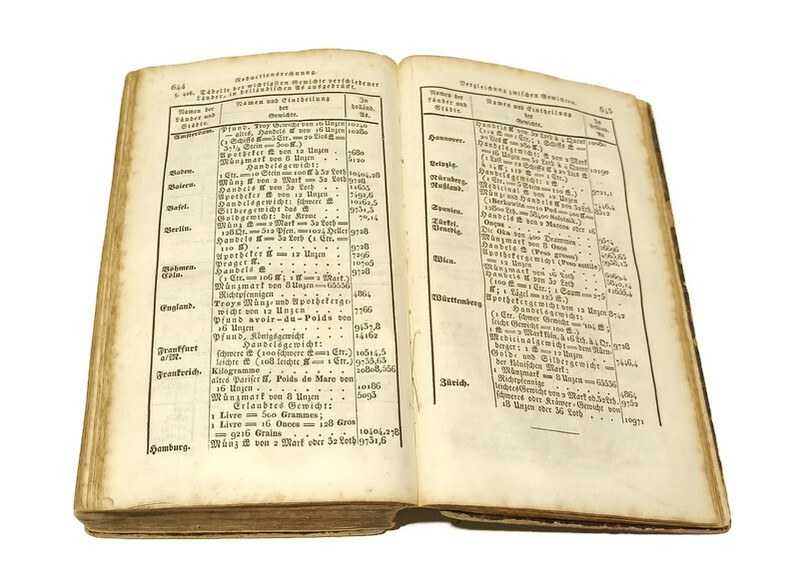 644
Reductionsrechnung.
Tabelle der wichtigsten Gewichte verschiedener
Länder, in holländischen As ausgedrückt.
Namen der
Länder und
Städte.
Namen und Eintheilung
der
Gewichte.
In
holländ.
As.
Amsterdam.
Pfund, Troy Gewicht von 16 Unzen 10240
— altes, Handels ℔ von 16 Unzen 10280
(1 Schiffs ℔ = 3 Ctr. = 20 Lies ℔
= 37½ Stein = 300 ℔.)
Apotheker ℔ von 12 Unzen 7680
Münzmark von 8 Unzen 5120
Baden.
Handelsgewicht:
1 Ctr. = 10 Stein = 100 ℔ à 32 Loth 10404,28
Münz ℔ von 2 Mark = 32 Loth 9728
Baiern.
Handels ℔ von 32 Loth 11655
Apotheker ℔ von 12 Unzen 7492,6
Basel.
Handelsgewicht: schwere ℔ 10262,5
Silbergewicht das ℔ 9731,5
Goldgewicht: die Krone 70,14
Berlin.
Münz ℔ = 2 Mark = 32 Loth =
128 Qt. = 512 Pfen. = 1024 Heller 9728
Handels ℔ = 32 Loth (1 Ctr. =
110 ℔) 9728
Apotheker ℔ = 12 Unzen 7296
Böhmen.
Prager ℔ 10705
Cöln.
Handels ℔ 9728
(1 Ctr. = 106 ℔; 1 ℔ = 2 Mark.)
Münzmark von 8 Unzen = 65536
Richtpfennigen 4864
England.
Troys Münz- und Apothekerge-
wicht von 12 Unzen 7766
Pfund avoir-du-Poids von
16 Unzen 9437,8
Pfund, Königsgewicht 14162
Frankfurt
a/M.
Handelsgewicht:
schwere ℔ (100 schwere ℔ = 1 Ctr.) 10514,5
leichte ℔ (108 leichte ℔ = 1 Ctr.) 9735,65
Frankreich.
Kilogramme 20808,556
altes Pariser ℔, Poids de Marc von
16 Unzen 10186
Münzmark von 8 Unzen 5093
Erlaubtes Gewicht:
1 Livre = 500 Grammes;
1 Livre = 16 Onces = 128 Gros
= 9216 Grains 10404,278
Hamburg.
Münz ℔ von 2 Mark oder 32 Loth 9731,6
Vergleichung zwischen Gewichten.
645
Namen der
Länder und
Städte.
Namen und Eintheilung
der
Gewichte.
In
holländ.
As.
Handels ℔ von 32 Loth à 4 Quent 10080
Hannover.
Handelsgewicht:
Leipzig.
10190
Nürnberg.
9721,1
Rußland.
Medicinal ℔ von 12 Unzen 7446,4
Münz- und Handels ℔ von 32 Loth
(1 Berkowitz = 10 Pud = 400 ℔ =
12800 Lth. = 38400 Solotnik.)
Spanien.
Handels ℔ von 2 Marcos oder 16
Onças
Türkei.
Die Oka von 400 Drammen
Venedig.
Münzmark von 8 Onces
Handels ℔ (Peso grosso)
Apothekergewicht (Peso sottile)
= 12 Unzen
Wien.
Münzmark von 16 Loth
Handels ℔ von 32 Loth
(100 ℔ = 1 Ctr.; 1 Saum = 275
℔; 1 Lägel = 125 ℔.)
Apothekergewicht von 12 Unzen 8742
Württemberg
Handelsgewicht:
(1 Ctr. schwer Gewicht = 104 ℔;
leicht Gewicht = 100 ℔.)
1 ℔ = 2 Mark köln. à 16 Lth. à 4 Qt. 9728
Medicinalgewicht = dem Nürn-
berger; 1 ℔ = 12 Unzen 7446,4
Gold- und Silbergewicht =
der kölnischen Mark:
1 Münzmark = 8 Unzen = 65536
Richtpfennige 4864
Zürich.
leichtes Gewicht von 2 Mark od. 32 Lth. 9752
schweres oder Krämer-Gewicht von
18 Unzen oder 36 Loth 10971